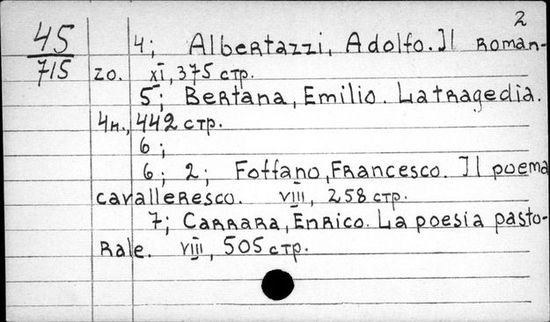 2
45 4; Albertazzi, Adolfo. Il roman-
715 zo. XI, 375 стр.
5; Bertana, Emilio. La tragedia.
4н., 442 стр.
6;
6; 2; Foffano, Francesco. Il poema
cavalleresco. VIII, 258 стр.
7; Carrara, Enrico. La poesia pasto-
rale. VIII, 505 стр.